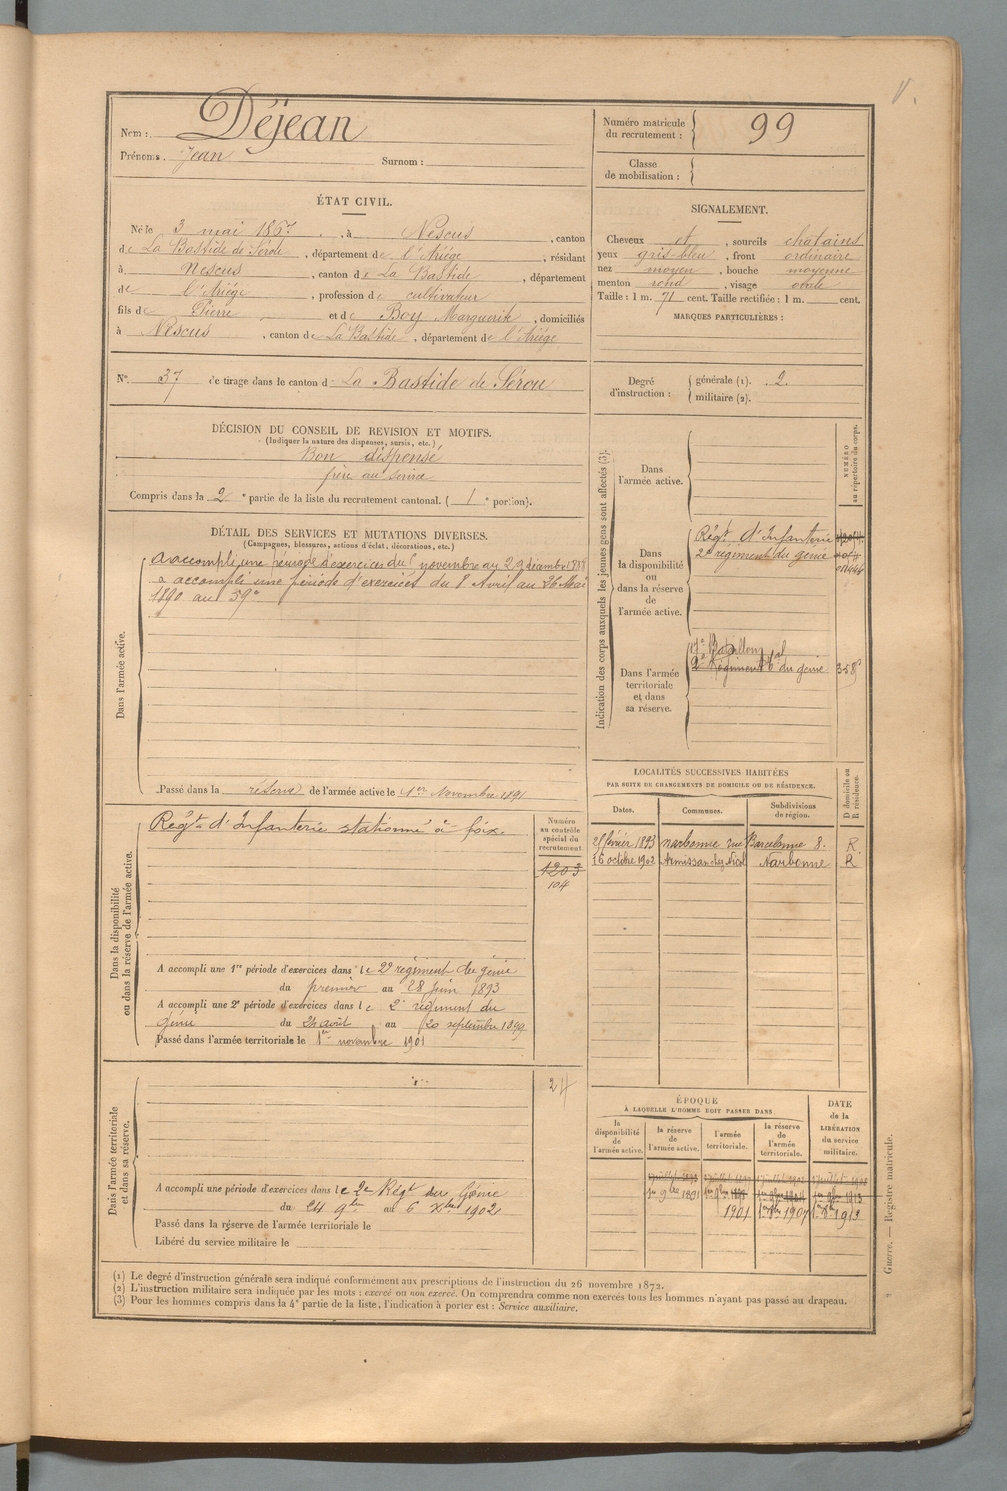 V.
Nom : Déjean
Prénoms. Jean Surnom :
Numéro matricule du recrutement : 99
Classe de mobilisation :
ÉTAT CIVIL.
Né le 3 mai 1867, à Nescus, canton
de La Bastide de Sérou, département de l'Ariége, résidant
à Nescus, canton de La Bastide, département
de l'Ariége, profession de cultivateur
fils de Pierre et de Boy Marguerite, domiciliés
à Nescus, canton de La Bastide, département de l'Ariége
N° 37 de tirage dans le canton de La Bastide de Sérou
SIGNALEMENT.
Cheveux et, sourcils chatains
yeux gris-bleu, front ordinaire
nez moyen, bouche moyenne
menton rond, visage ovale
Taille : 1 m. 71 cent. Taille rectifiée : 1 m. cent.
MARQUES PARTICULIÈRES :
Degré d'instruction : générale (1). 2.
militaire (2).
DÉCISION DU CONSEIL DE REVISION ET MOTIFS.
(Indiquer la nature des dispenses, sursis, etc.)
Bon dispensé
frère au service
Compris dans la 2e partie de la liste du recrutement cantonal. (1e portion).
DÉTAIL DES SERVICES ET MUTATIONS DIVERSES.
(Campagnes, blessures, actions d'éclat, décorations, etc.)
Dans l'armée active.
a accompli une période d'exercices du 1 novembre au 29 décembre 1888
a accompli une période d'exercices du 8 Avril au 26 Mai
1890 au 59e
Passé dans la réserve de l'armée active le 1er Novembre 1891
Indication des corps auxquels les jeunes gens sont affectés (3).
NUMÉRO au répertoire du corps.
Dans l'armée active.
Dans la disponibilité ou dans la réserve de l'armée active.
Régt d'Infanterie
2e régiment du génie
Dans l'armée territoriale et dans sa réserve.
17e Bataillon
2e Régiment tal du génie 358
Dans la disponibilité ou dans la réserve de l'armée active.
Régt d'Infanterie stationné à foix.
Numéro au contrôle spécial du recrutement.
1203
104
A accompli une 1re période d'exercices dans le 2e régiment du génie
du premier au 28 juin 1893
A accompli une 2e période d'exercices dans le 2e régiment du
génie du 24 août au 20 septembre 1899
Passé dans l'armée territoriale le 1er novembre 1901
LOCALITÉS SUCCESSIVES HABITÉES
PAR SUITE DE CHANGEMENTS DE DOMICILE OU DE RÉSIDENCE.
Dates. Communes. Subdivisions de région. D domicile ou R résidence.
février 1893 narbonne rue Barcelonne 8. R.
16 octobre 1902 Armissan chez Nicol Narbonne R
Dans l'armée territoriale et dans sa réserve.
24
A accompli une période d'exercices dans le 2e Régt du Génie
du 24 9bre au 6 Xbre 1902
Passé dans la réserve de l'armée territoriale le
Libéré du service militaire le
ÉPOQUE
À LAQUELLE L'HOMME DOIT PASSER DANS
la disponibilité de l'armée active. la réserve de l'armée active. l'armée territoriale. la réserve de l'armée territoriale. DATE de la LIBÉRATION du service militaire.
1er 9bre 1891
1901 1er 9bre 1907 1913
(1) Le degré d'instruction générale sera indiqué conformément aux prescriptions de l'instruction du 26 novembre 1872.
(2) L'instruction militaire sera indiquée par les mots : exercé ou non exercé. On comprendra comme non exercés tous les hommes n'ayant pas passé au drapeau.
(3) Pour les hommes compris dans la 4e partie de la liste, l'indication à porter est : Service auxiliaire.
Guerre. — Registre matricule.